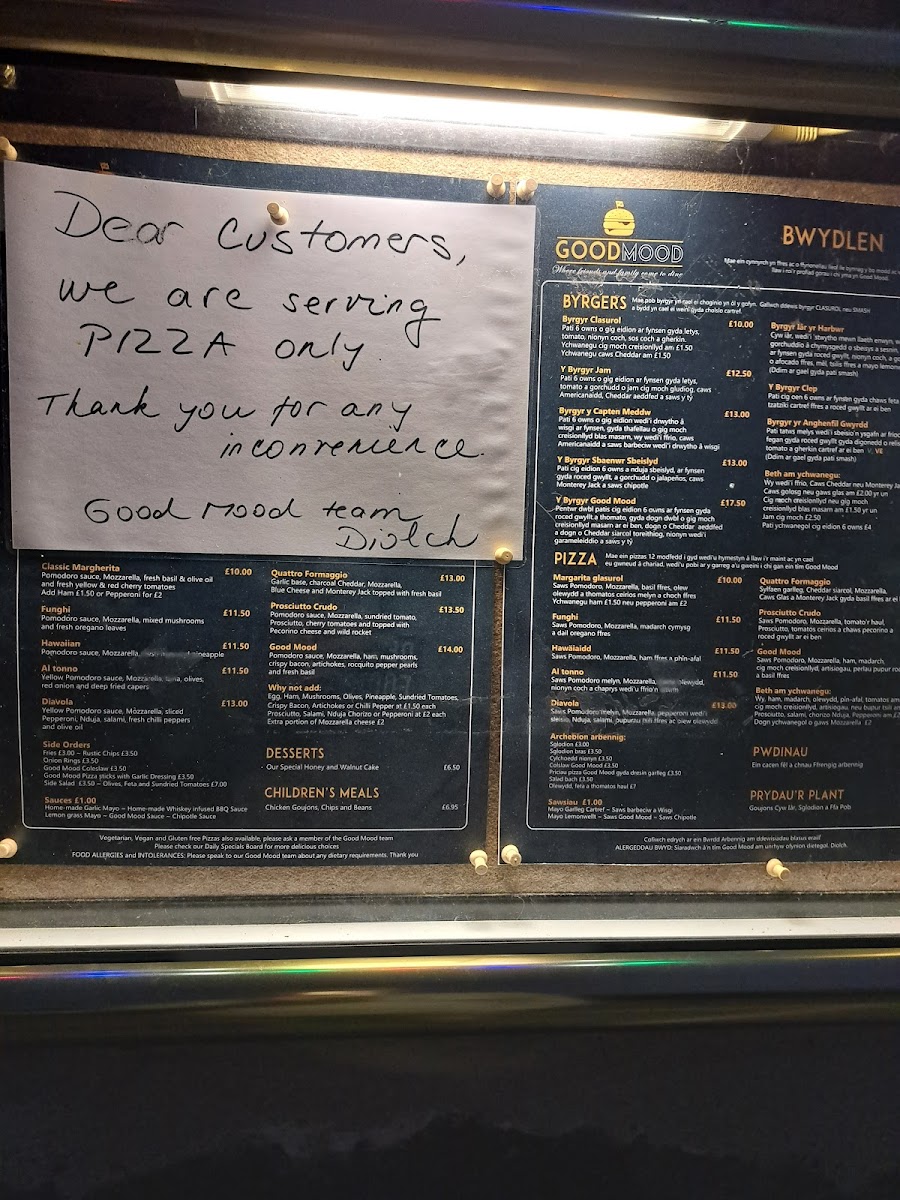 Dear Customers,
we are serving
PIZZA only.
Thank you for any
inconvenience.
Good Mood team
Diolch
Classic Margherita £10.00
Pomodoro sauce, Mozzarella, fresh basil & olive oil
and fresh yellow & red cherry tomatoes
Add Ham £1.50 or Pepperoni for £2
Funghi £11.50
Pomodoro sauce, Mozzarella, mixed mushrooms
and fresh oregano leaves
Hawaiian £11.50
Pomodoro sauce, Mozzarella, pineapple
Al tonno £11.50
Yellow Pomodoro sauce, Mozzarella, tuna, olives,
red onion and deep fried capers
Diavola £13.00
Yellow Pomodoro sauce, Mozzarella, sliced
Pepperoni, Nduja, salami, fresh chilli peppers
and olive oil
Side Orders
Fries £3.00 ~ Rustic Chips £3.50
Onion Rings £3.50
Good Mood Coleslaw £3.50
Good Mood Pizza sticks with Garlic Dressing £3.50
Side Salad £3.50 ~ Olives, Feta and Sundried Tomatoes £7.00
Sauces £1.00
Home-made Garlic Mayo ~ Home-made Whiskey infused BBQ Sauce
Lemon grass Mayo ~ Good Mood Sauce ~ Chipotle Sauce
Quattro Formaggio £13.00
Garlic base, charcoal Cheddar, Mozzarella,
Blue Cheese and Monterey Jack topped with fresh basil
Prosciutto Crudo £13.50
Pomodoro sauce, Mozzarella, sundried tomato,
Prosciutto, cherry tomatoes and topped with
Pecorino cheese and wild rocket
Good Mood £14.00
Pomodoro sauce, Mozzarella, ham, mushrooms,
crispy bacon, artichokes, rocquito pepper pearls
and fresh basil
Why not add:
Egg, Ham, Mushrooms, Olives, Pineapple, Sundried Tomatoes,
Crispy Bacon, Artichokes or Chilli Pepper at £1.50 each
Prosciutto, Salami, Nduja Chorizo or Pepperoni at £2 each
Extra portion of Mozzarella cheese £2
DESSERTS
Our Special Honey and Walnut Cake £6.50
CHILDREN'S MEALS
Chicken Goujons, Chips and Beans £6.95
Vegetarian, Vegan and Gluten free Pizzas also available, please ask a member of the Good Mood team
Please check our Daily Specials Board for more delicious choices
FOOD ALLERGIES and INTOLERANCES: Please speak to our Good Mood team about any dietary requirements. Thank you
GOODMOOD
Where friends and family come to dine
BWYDLEN
BYRGERS Mae pob byrgyr yn cael ei choginio yn ôl y gofyn. Gallwch ddewis byrgyr CLASUROL neu SMASH
a bydd yn cael ei weini gyda cholslo cartref.
Byrgyr Clasurol £10.00
Pati 6 owns o gig eidion ar fynsen gyda letys,
tomato, nionyn coch, sos coch a gherkin.
Ychwanegu cig moch creisionllyd am £1.50
Ychwanegu caws Cheddar am £1.50
Y Byrgyr Jam £12.50
Pati 6 owns o gig eidion ar fynsen gyda letys,
tomato a gorchudd o jam cig moch gludiog, caws
Americanaidd, Cheddar aeddfed a saws y tŷ
Byrgyr y Capten Meddw £13.00
Pati 6 owns o gig eidion wedi'i drwytho â
wisgi ar fynsen, gyda thafellau o gig moch
creisionllyd blas masarn, wy wedi'i ffrio, caws
Americanaidd a saws barbeciw wedi'i drwytho â wisgi
Y Byrgyr Sbaenwr Sbeislyd £13.00
Pati cig eidion 6 owns a nduja sbeislyd, ar fynsen
gyda roced gwyllt, a gorchudd o jalapeños, caws
Monterey Jack a saws chipotle
Y Byrgyr Good Mood £17.50
Pentwr dwbl patis cig eidion 6 owns ar fynsen gyda
roced gwyllt a thomato, gyda dogn dwbl o gig moch
creisionllyd masarn ar ei ben, dogn o Cheddar aeddfed
a dogn o Cheddar siarcol toreithiog, nionyn wedi'i
garameleiddio a saws y tŷ
Byrgyr Iâr yr Harbwr
Y Byrgyr Clep
Byrgyr yr Anghenfil Gwyrdd
(Ddim ar gael gyda pati smash)
Beth am ychwanegu:
Jam cig moch £2.50
Pati ychwanegol cig eidion 6 owns £4
PIZZA Mae ein pizzas 12 modfedd i gyd wedi'u hymestyn â llaw i'r maint ac yn cael
eu gwneud â chariad, wedi'u pobi ar y garreg a'u gweini i chi gan ein tîm Good Mood
Margarita glasurol £10.00
Saws Pomodoro, Mozzarella, basil ffres, olew
olewydd a thomatos ceirios melyn a choch ffres
Ychwanegu ham £1.50 neu pepperoni am £2
Funghi £11.50
Saws Pomodoro, Mozzarella, madarch cymysg
a dail oregano ffres
Hawäiaidd £11.50
Saws Pomodoro, Mozzarella, ham ffres a phîn-afal
Al tonno £11.50
Saws Pomodoro melyn, Mozzarella,
Diavola £13.00
Archebion ambennig:
Sglodion £3.00
Sglodion bras £3.50
Cylchoedd nionyn £3.50
Colslaw Good Mood £3.50
Priciau pizza Good Mood gyda dresin garlleg £3.50
Salad bach £3.50
Olewydd, feta a thomatos haul £7
Sawsiau £1.00
Mayo Garlleg Cartref ~ Saws barbeciw a Wisgi
Mayo Lemonwellt ~ Saws Good Mood ~ Saws Chipotle
Quattro Formaggio
Sylfaen garlleg, Cheddar siarcol, Mozzarella,
Prosciutto Crudo
Saws Pomodoro, Mozzarella, tomato'r haul,
Prosciutto, tomatos ceirios a chaws pecorino a
roced gwyllt ar ei ben
Good Mood
Saws Pomodoro, Mozzarella, ham, madarch,
a basil ffres
Beth am ychwanegu:
PWDINAU
Ein cacen fêl a chnau Ffrengig arbennig
PRYDAU'R PLANT
Goujons Cyw Iâr, Sglodion a Ffa Pob
Cofiwch edrych ar ein Bwrdd Arbennig am ddewisiadau blasus eraill
ALERGEDDAU BWYD: Siaradwch â'n tîm Good Mood am unrhyw ofynion dietegol. Diolch.